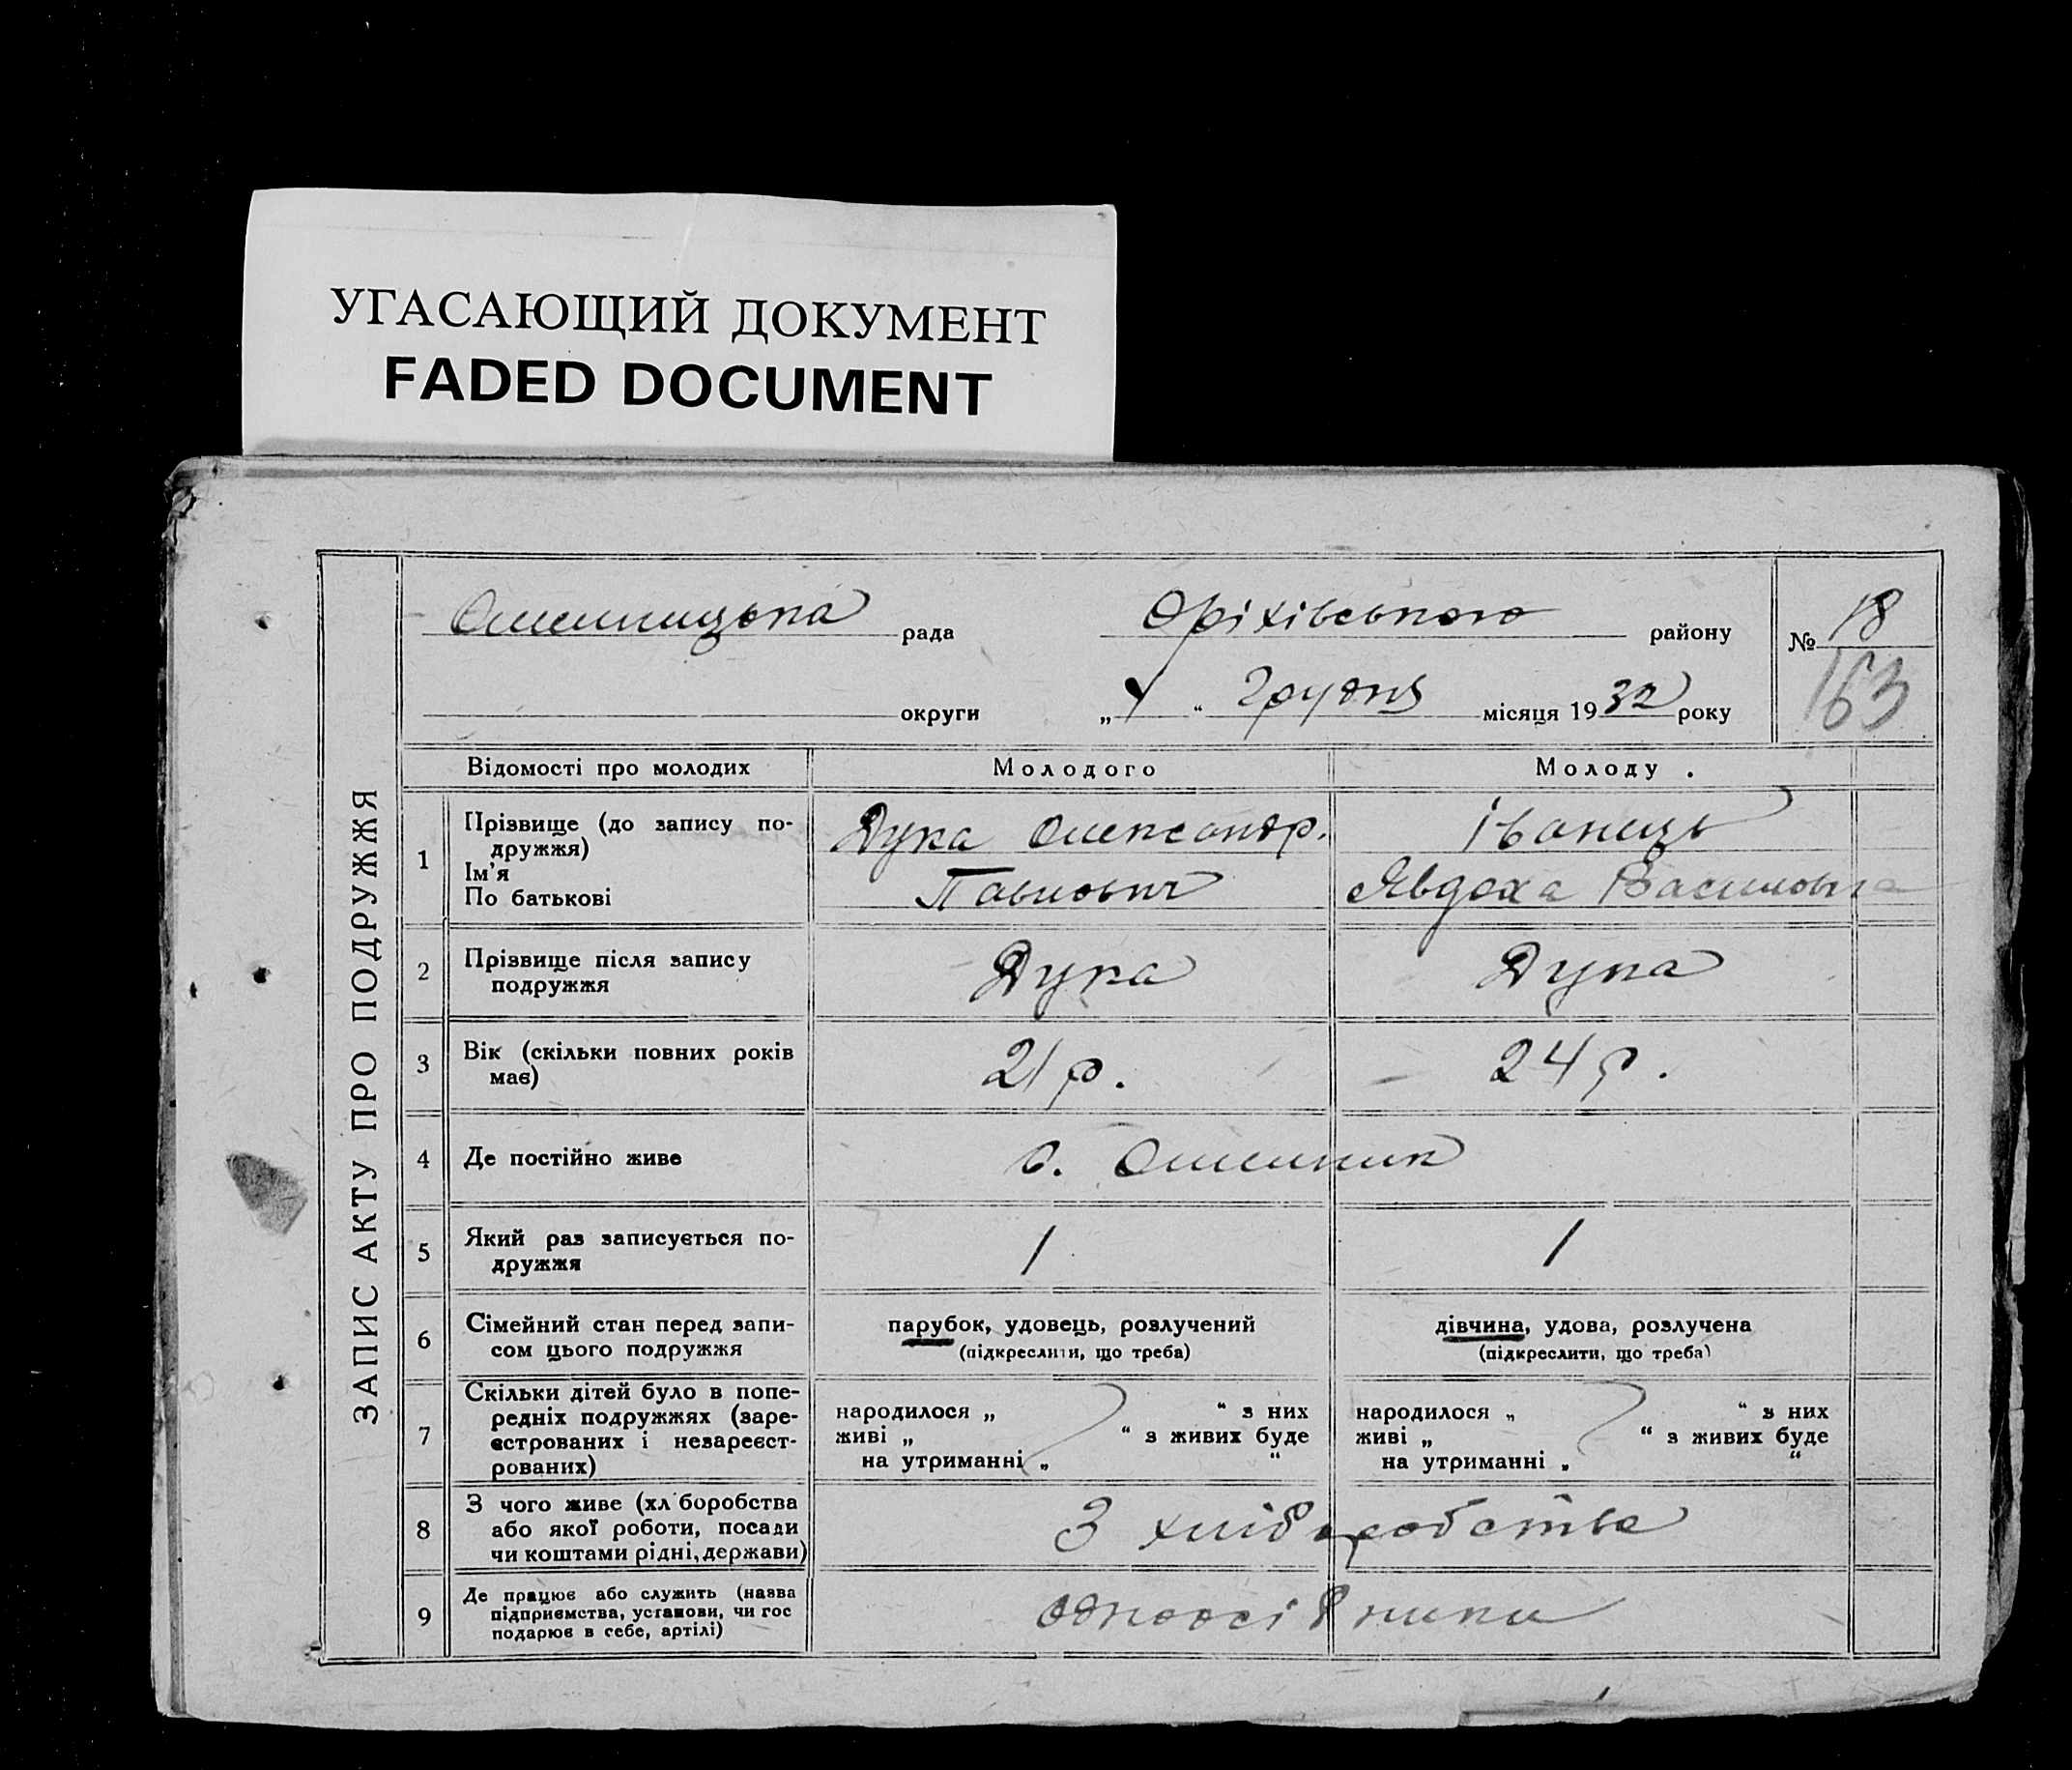 УГАСАЮЩИЙ ДОКУМЕНТ
FADED DOCUMENT
ЗАПИС АКТУ ПРО ПОДРУЖЖЯ
рада Оріхівського району № 18
округи „ “ Грудня місяця 1932 року 163
Відомості про молодих Молодого Молоду
1 Прізвище (до запису по-
дружжя)
Ім’я
По батькові
Дука Олександр.
Павлович
Іванець
Явдоха Василовна
2 Прізвище після запису
подружжя
Дука Дука
3 Вік (скільки повних років
має)
21 р. 24 р.
4 Де постійно живе с.
5 Який раз записується по-
дружжя
1 1
6 Сімейний стан перед запи-
сом цього подружжя
парубок, удовець, розлучений
(підкреслити, що треба)
дівчина, удова, розлучена
(підкреслити, що треба)
7 Скільки дітей було в попе-
редніх подружжях (заре-
єстрованих і незареєст-
рованих)
народилося „ “ з них
живі „ “ з живих буде
на утриманні „ “
народилося „ “ з них
живі „ “ з живих буде
на утриманні „ “
8 З чого живе (хліборобства
або якої роботи, посади
чи коштами рідні, держави)
З хліборобства
9 Де працює або служить (назва
підприємства, установи, чи гос
подарює в себе, артілі)
одноосібники